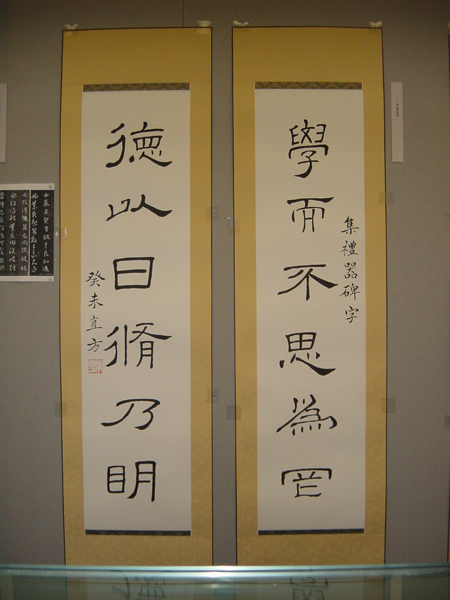 集禮器碑字
學而不思為罔
德以日脩乃眀
癸未直方